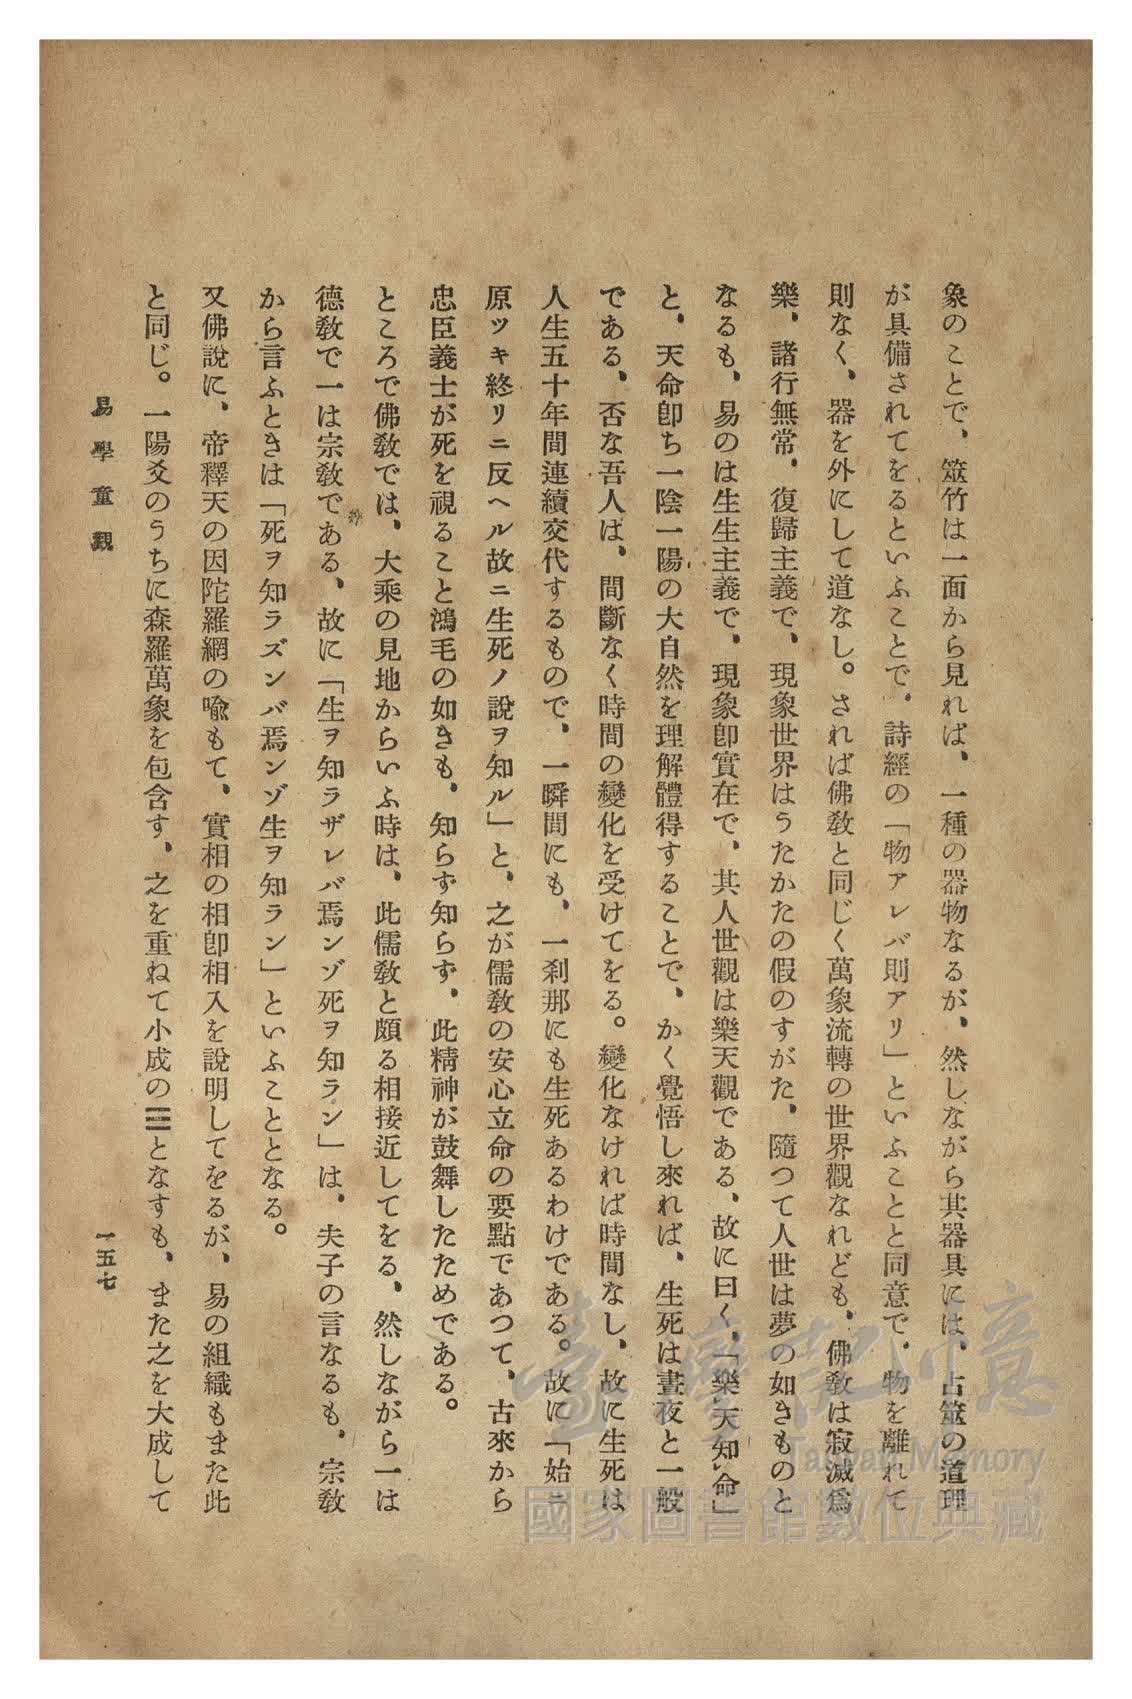 象のことで、筮竹は一面から見れば、一種の器物なるが、然しながら其器具には、占筮の道理
が具備されてをるといふことで、詩經の「物アレバ則アリ」といふことと同意で、物を離れて
則なく、器を外にして道なし。されば佛敎と同じく萬象流轉の世界觀なれども、佛敎は寂滅爲
樂、諸行無常、復歸主義で、現象世界はうたかたの假のすがた、隨つて人世は夢の如きものと
なるも、易のは生生主義で、現象卽實在で、其人世觀は樂天觀である、故に曰く、「樂天知命」
と、天命卽ち一陰一陽の大自然を理解體得することで、かく覺悟し來れば、生死は晝夜と一般
である、否な吾人は、間斷なく時間の變化を受けてをる。變化なければ時間なし、故に生死は
人生五十年間連續交代するもので、一瞬間にも、一刹那にも生死あるわけである。故に「始ニ
原ツキ終リニ反ヘル故ニ生死ノ說ヲ知ル」と、之が儒敎の安心立命の要點であつて、古來から
忠臣義士が死を視ること鴻毛の如きも、知らず知らず、此精神が鼓舞したためである。
ところで佛敎では、大乘の見地からいふ時は、此儒敎と頗る相接近してをる、然しながら一は
德敎で一は宗敎である、故に「生ヲ知ラザレバ焉ンゾ死ヲ知ラン」は、夫子の言なるも、宗敎
から言ふときは「死ヲ知ラズンバ焉ンゾ生ヲ知ラン」といふこととなる。
又佛說に、帝釋天の因陀羅網の喩もて、實相の相卽相入を說明してをるが、易の組織もまた此
と同じ。一陽爻のうちに森羅萬象を包含す、之を重ねて小成の☰となすも、また之を大成して
易學童觀
一五七
臺灣記憶
Taiwan Memory
國家圖書館數位典藏